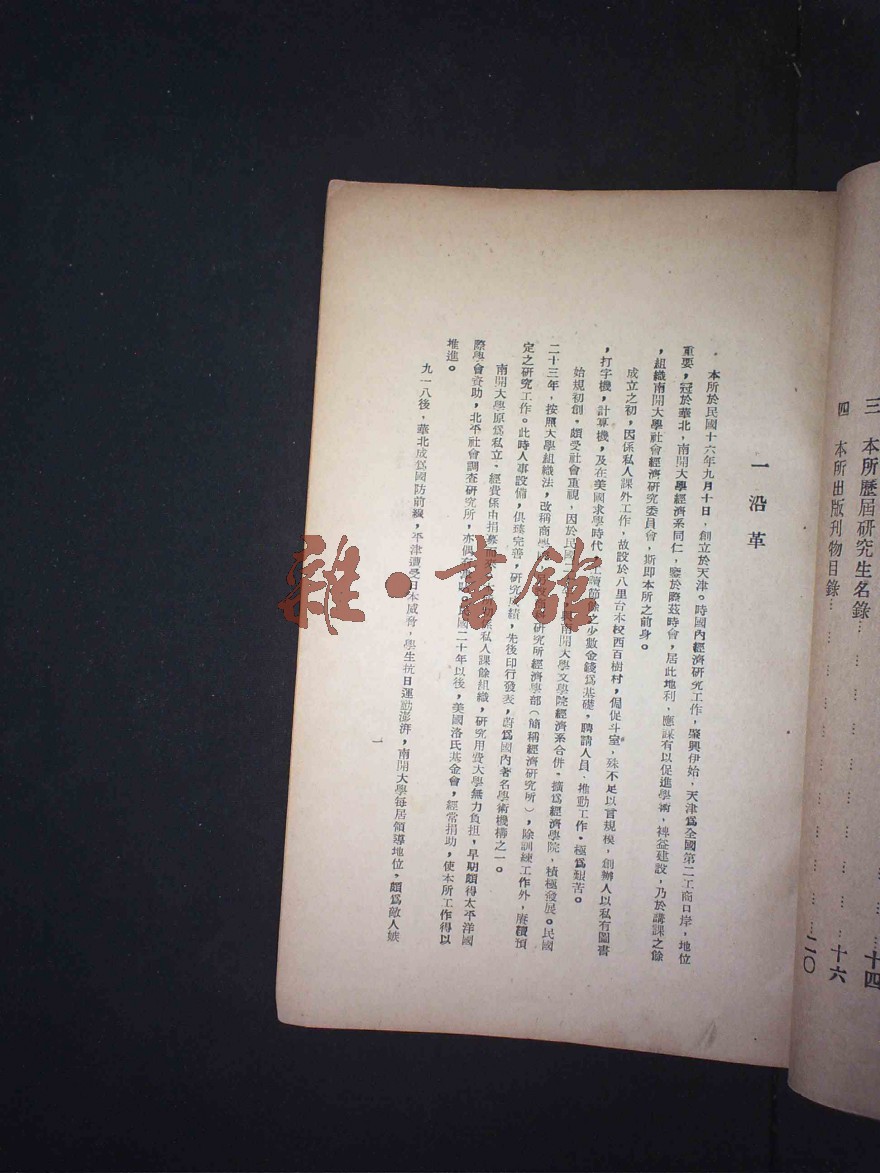 三 本所歷屆研究生名錄… … … … … … … … …十四
… …十六
四 本所出版刊物目錄… … … … … … … … …二〇
一 沿革
本所於民國十六年九月十日，創立於天津。時國內經濟研究工作，聚興伊始，天津爲全國第二工商口岸，地位
重要，冠於華北，南開大學經濟系同仁，鑒於際茲時會，居此地利，應謀有以促進學術，裨益建設，乃於講課之餘
，組織南開大學社會經濟研究委員會，斯即本所之前身。
成立之初，因係私人課外工作，故設於八里台本校西百樹村，侷促斗室，殊不足以言規模，創辦人以私有圖書
，打字機，計算機，及在美國求學時代，工讀節餘之少數金錢爲基礎，聘請人員，推動工作，極爲艱苦。
始規初創，頗受社會重視，因於民國二十年，與南開大學文學院經濟系合併，擴爲經濟學院，積極發展。民國
二十三年，按照大學組織法，改稱商學 研究所經濟學部（簡稱經濟研究所），除訓練工作外，賡續預
定之研究工作。此時人事設備，俱臻完善，研究成績，先後印行發表，蔚爲國內著名學術機構之一。
南開大學原爲私立，經費係由捐募而來， 係私人課餘組織，研究用費大學無力負担，早期頗得太平洋國
際學會資助，北平社會調查研究所，亦偶有 民國二十年以後，美國洛氏基金會，經常捐助，使本所工作得以
推進。
九一八後，華北成爲國防前線，平津遭受日本威脅，學生抗日運動澎湃，南開大學每居領導地位，頗爲敵人嫉
一
雜·書館